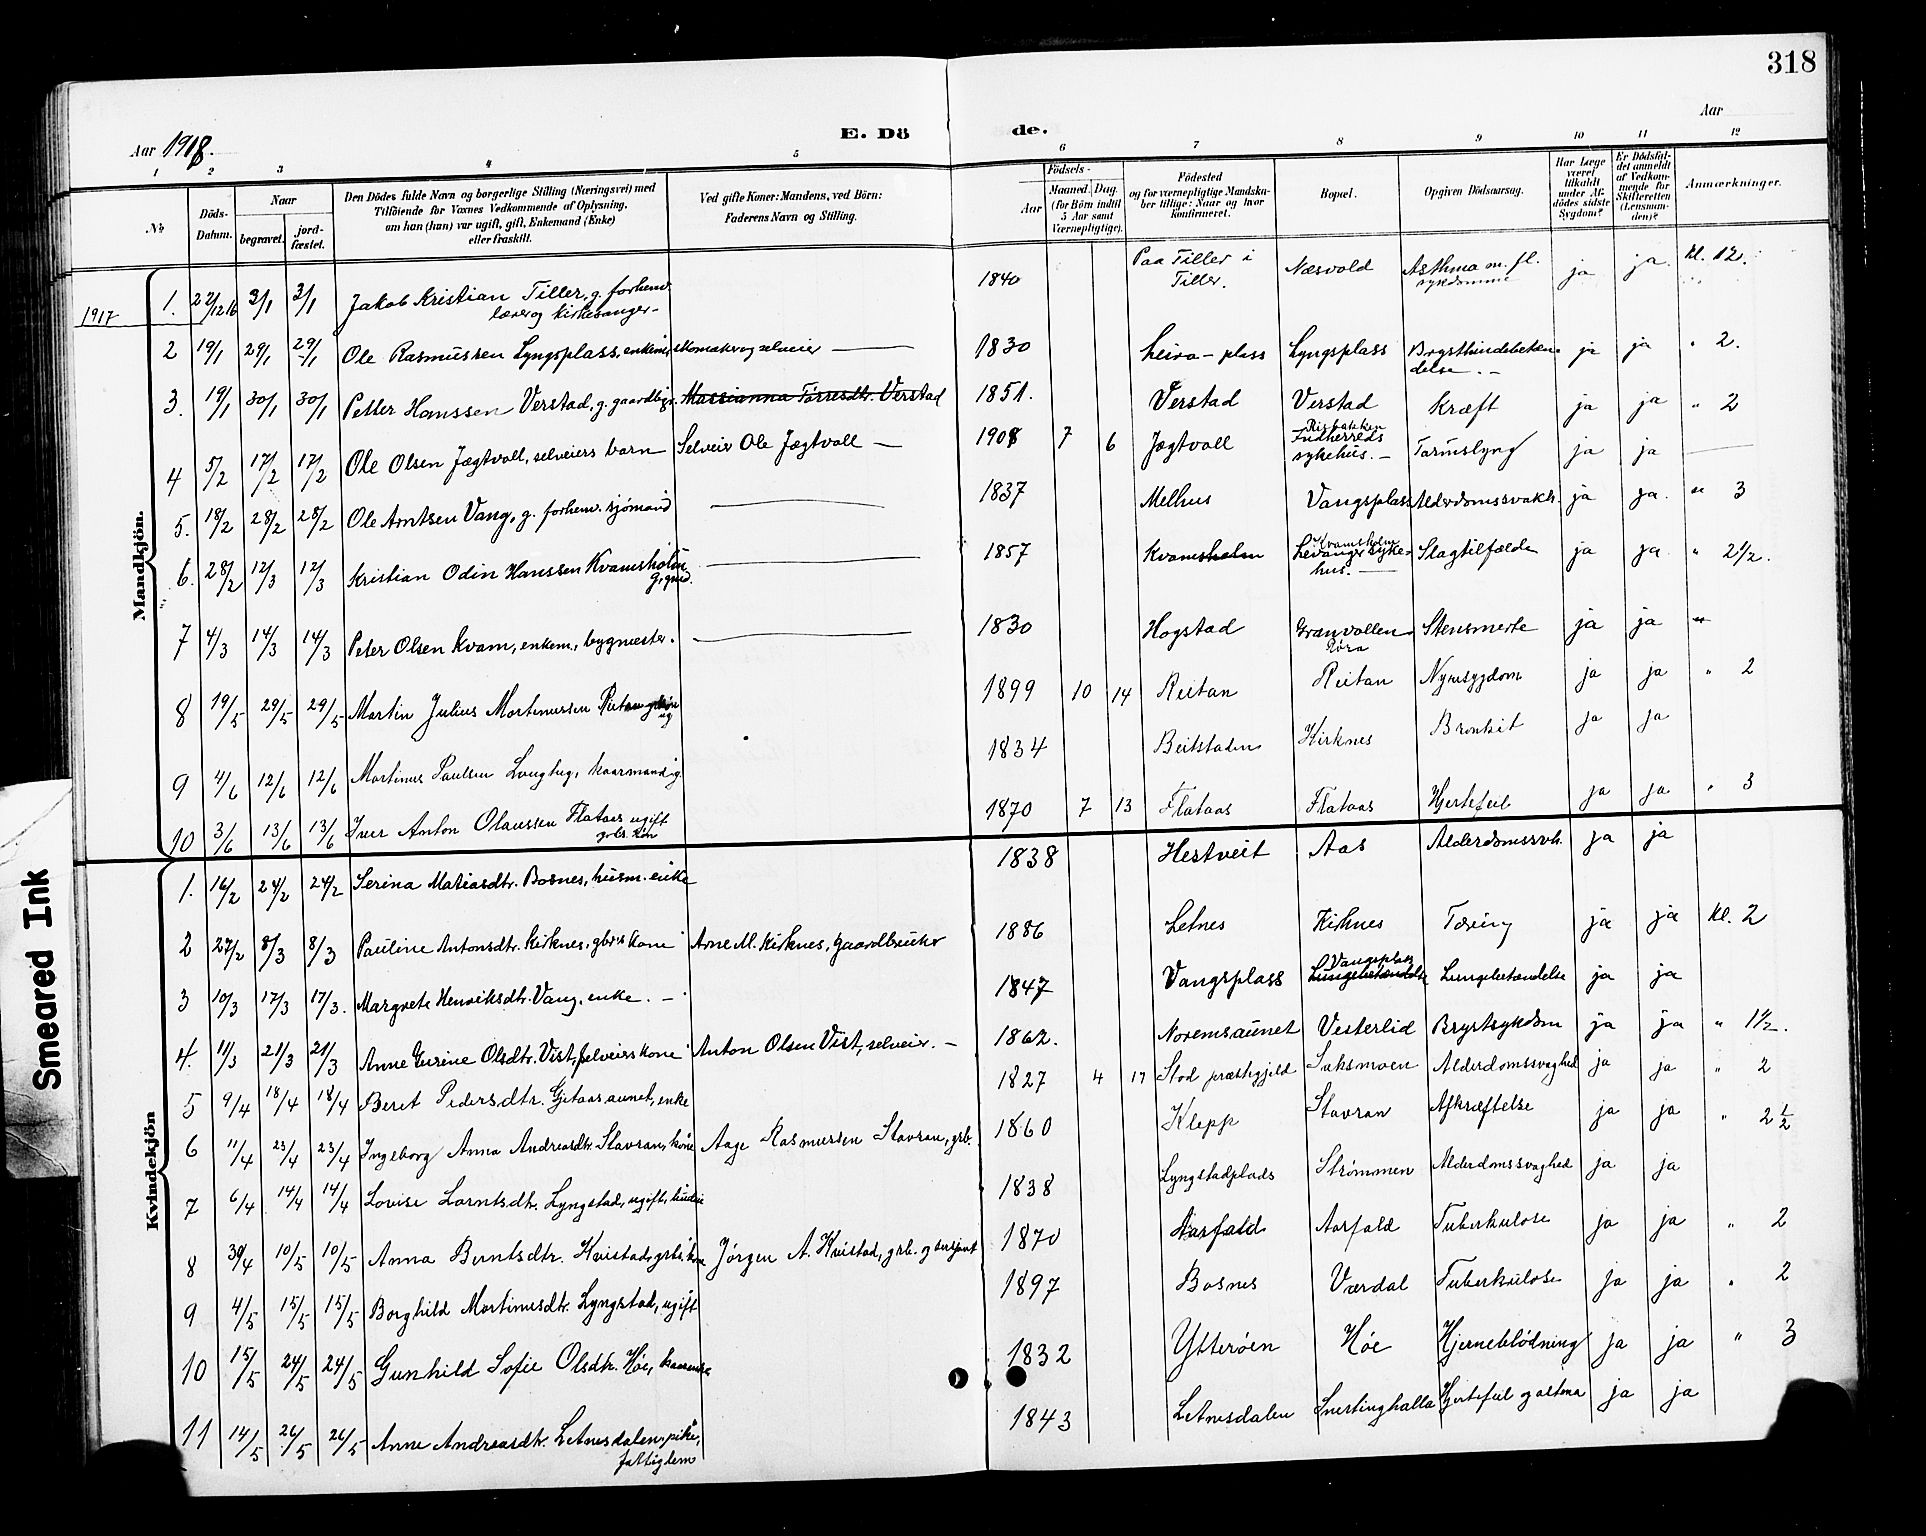 318
Aar 1918.
E. Dö de.
Aar
1 2 3 4 5 6 7 8 9 10 11 12
No
Döds-Datum.
Naar
begravet.
jord-fæstet.
Den Dödes fulde Navn og borgerlige Stilling (Næringsvei) med
Tilföiende for Voxnes Vedkommende af Oplysning,
om han (hun) var ugift, gift, Enkemand (Enke)
eller fraskilt.
Ved gifte Koner: Mandens, ved Börn:
Faderens Navn og Stilling.
Födsels-
Aar
Maaned. Dag.
(for Börn indtil
5 Aar samt
Værnepligtige).
Födested
og for værnepligtige Mandska-
ber tillige: Naar og hvor
konfirmeret.
Bopæl.
Opgiven Dödsaarsag.
Har Læge
været
tilkaldt
under Af-
dödes sidste
Sygdom?
Er Dödsfal-
det anmeldt
af Vedkom-
mende for
Skifteretten
(Lensman-
den)?
Anmærkninger.
Mandkjön.
1917
1. 22/12 16 3/1 3/1 Jakob Kristian Tiller, g. forhenv. lærer og kirkesanger - 1840 Paa Tiller i Tiller. Næsvold Asthma m. fl. sykdomme ja ja. kl. 12.
2 19/1 29/1 29/1 Ole Rasmussen Lyngsplass, enkem., skomaker og selveier 1830 Leira-plass Lyngsplass Brysthindebetændelse. - ja ja " 2.
3. 19/1 30/1 30/1 Petter Hanssen Verstad, g. gaardbgr. Massianna Tørresdtr. Verstad 1851. Verstad Verstad Kræft ja ja " 2
4 5/2 17/2 17/2 Ole Olsen Jægtvoll, selveiers barn Selveier Ole Jægtvoll - 1908 7 6 Jægtvoll Risbakken Indherreds sykehus. - Tarmslyng ja ja
5. 18/2 28/2 28/2 Ole Arntsen Vang, g. forhenv. sjømand 1837 Melhus Vangsplass Alderdomssvakh. ja ja. " 3
6. 28/2 12/3 12/3 Kristian Odin Hanssen Kvamsholm G. gmd. 1857 Kvamsholm Kvamsholm Levanger sykehus. Slagtilfælde ja ja " 2 1/2.
7 4/3 14/3 14/3 Peter Olsen Kvam, enkem., bygmester. 1830 Hogstad Granvollen Røra Stensmerte ja ja "
8 19/5 29/5 29/5 Martin Julius Martinussen Reitan ug 1899 10 14 Reitan Reitan Nyresygdom ja ja " 2
9 4/6 12/6 12/6 Martinus Paulsen kaarmand g. 1834 Beitstaden Kirknes Bronkit ja ja
10 3/6 13/6 13/6 Iver Anton Olaussen Flataas ugift 1870 7 13 Flataas Flataas Hjertefeil ja ja " 3
Kvindekjön
1. 16/2 24/2 24/2 Serina Matiasdtr. Bosnes, husm. enke 1838 Hestveit Aas Alderdomssvh. ja ja
2 27/2 8/3 8/3 Pauline Antonsdtr. Kirknes, gbrs kone Arne M. Kirknes, Gaardbruker 1886 Letnes Kirknes Tæring ja ja kl. 2
3 10/3 17/3 17/3. Margrete Henriksdtr. Vang, enke. - 1847 Vangsplass Vangsplass Lungebetændelse Lungebetændelse ja ja
4. 11/3 21/3 21/3 Anne Gurine Olsdtr. Vist, selveiers kone Anton Olsen Vist, selveier. - 1862. Noremsaunet Vesterlid Brystsykdom ja ja " 1 1/2.
5 9/4 18/4 18/4 Beret Pedersdtr. Gjetaasaunet, enke 1827 4 17 Stod præstegjeld Saksmoen Alderdomssvaghed ja ja " 2
6 11/4 23/4 23/4 Ingeborg Anna Andreasdtr. Stavran, kone Aage Rasmussen Stavran, grb. 1860 Klepp Stavran Afkræftelse ja ja " 2 1/2
7 6/4 14/4 14/4 Lovise Larntsdtr. Lyngstad, ugift, 1838 Lyngstadplads Strømmen Alderdomssvaghed ja ja
8 30/4 10/5 10/5 Anna Berntsdtr. Kvistad, grbs. kone Jørgen A. Kvistad, grb. og sersjant 1870 Aarfald Aarfald Tuberkulose ja ja " 2
9 4/5 15/5 15/5 Borghild Martinusdtr. Lyngstad, ugift 1897 Bosnes Værdal Tuberkulose ja ja " 2
10 15/5 24/5 24/5 Gunhild Sofie Olsdtr. Høe, 1832 Ytterøen Høe Hjerneblødning ja ja " 3
11 14/5 26/5 26/5 Anne Andreasdtr. Letnesdalen, pike, fattiglem 1843 Letnesdalen Snertinghalla Hjertefeil og astma ja ja
Smeared Ink